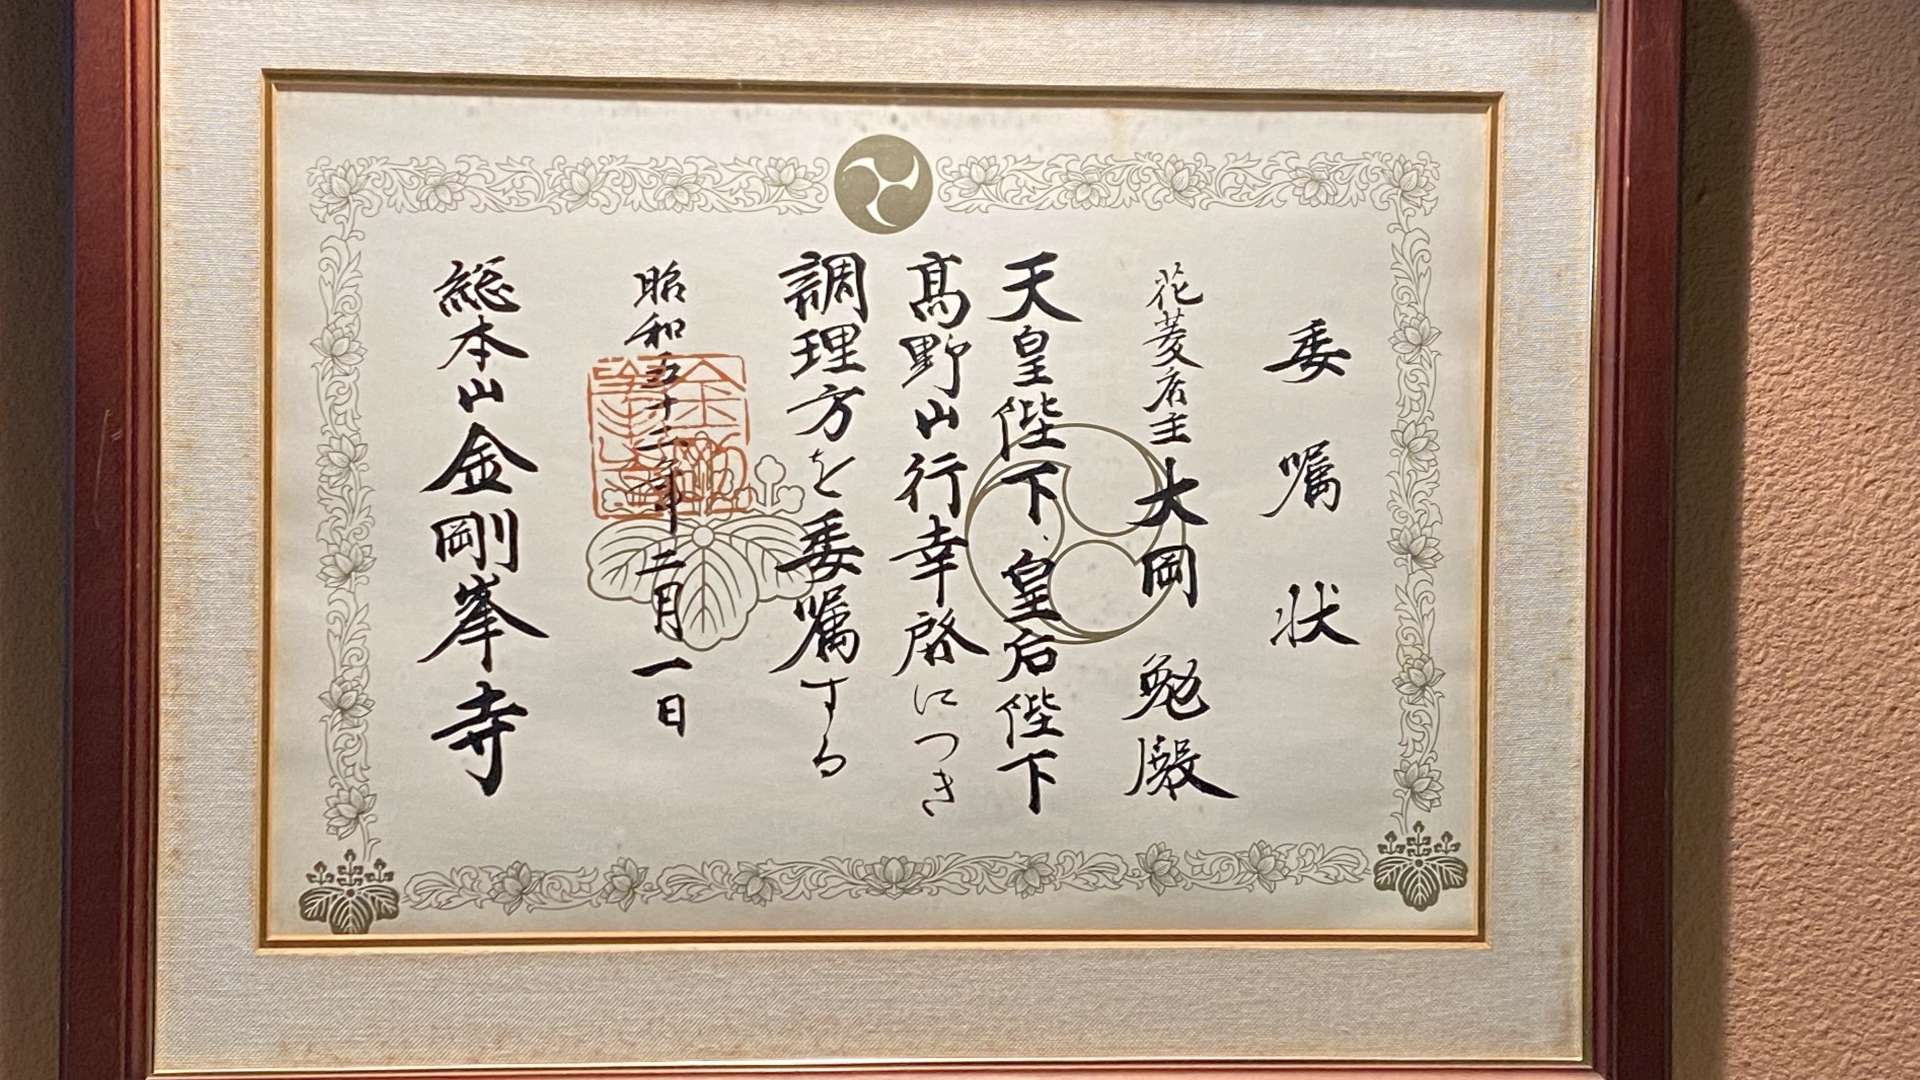 委嘱状
花菱店主 大岡 勉殿
天皇陛下、皇后陛下
髙野山行幸啓につき
調理方を委嘱する
昭和五十二年二月一日
総本山金剛峯寺